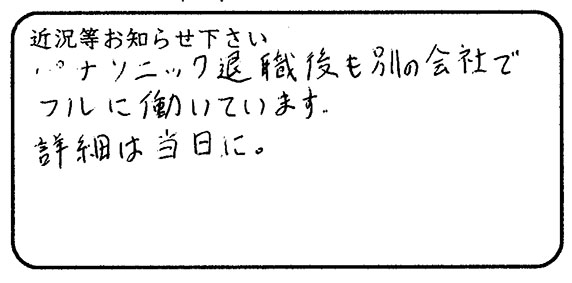 近況等お知らせ下さい
パナソニック退職後も別の会社で
フルに働いています.
詳細は当日に。